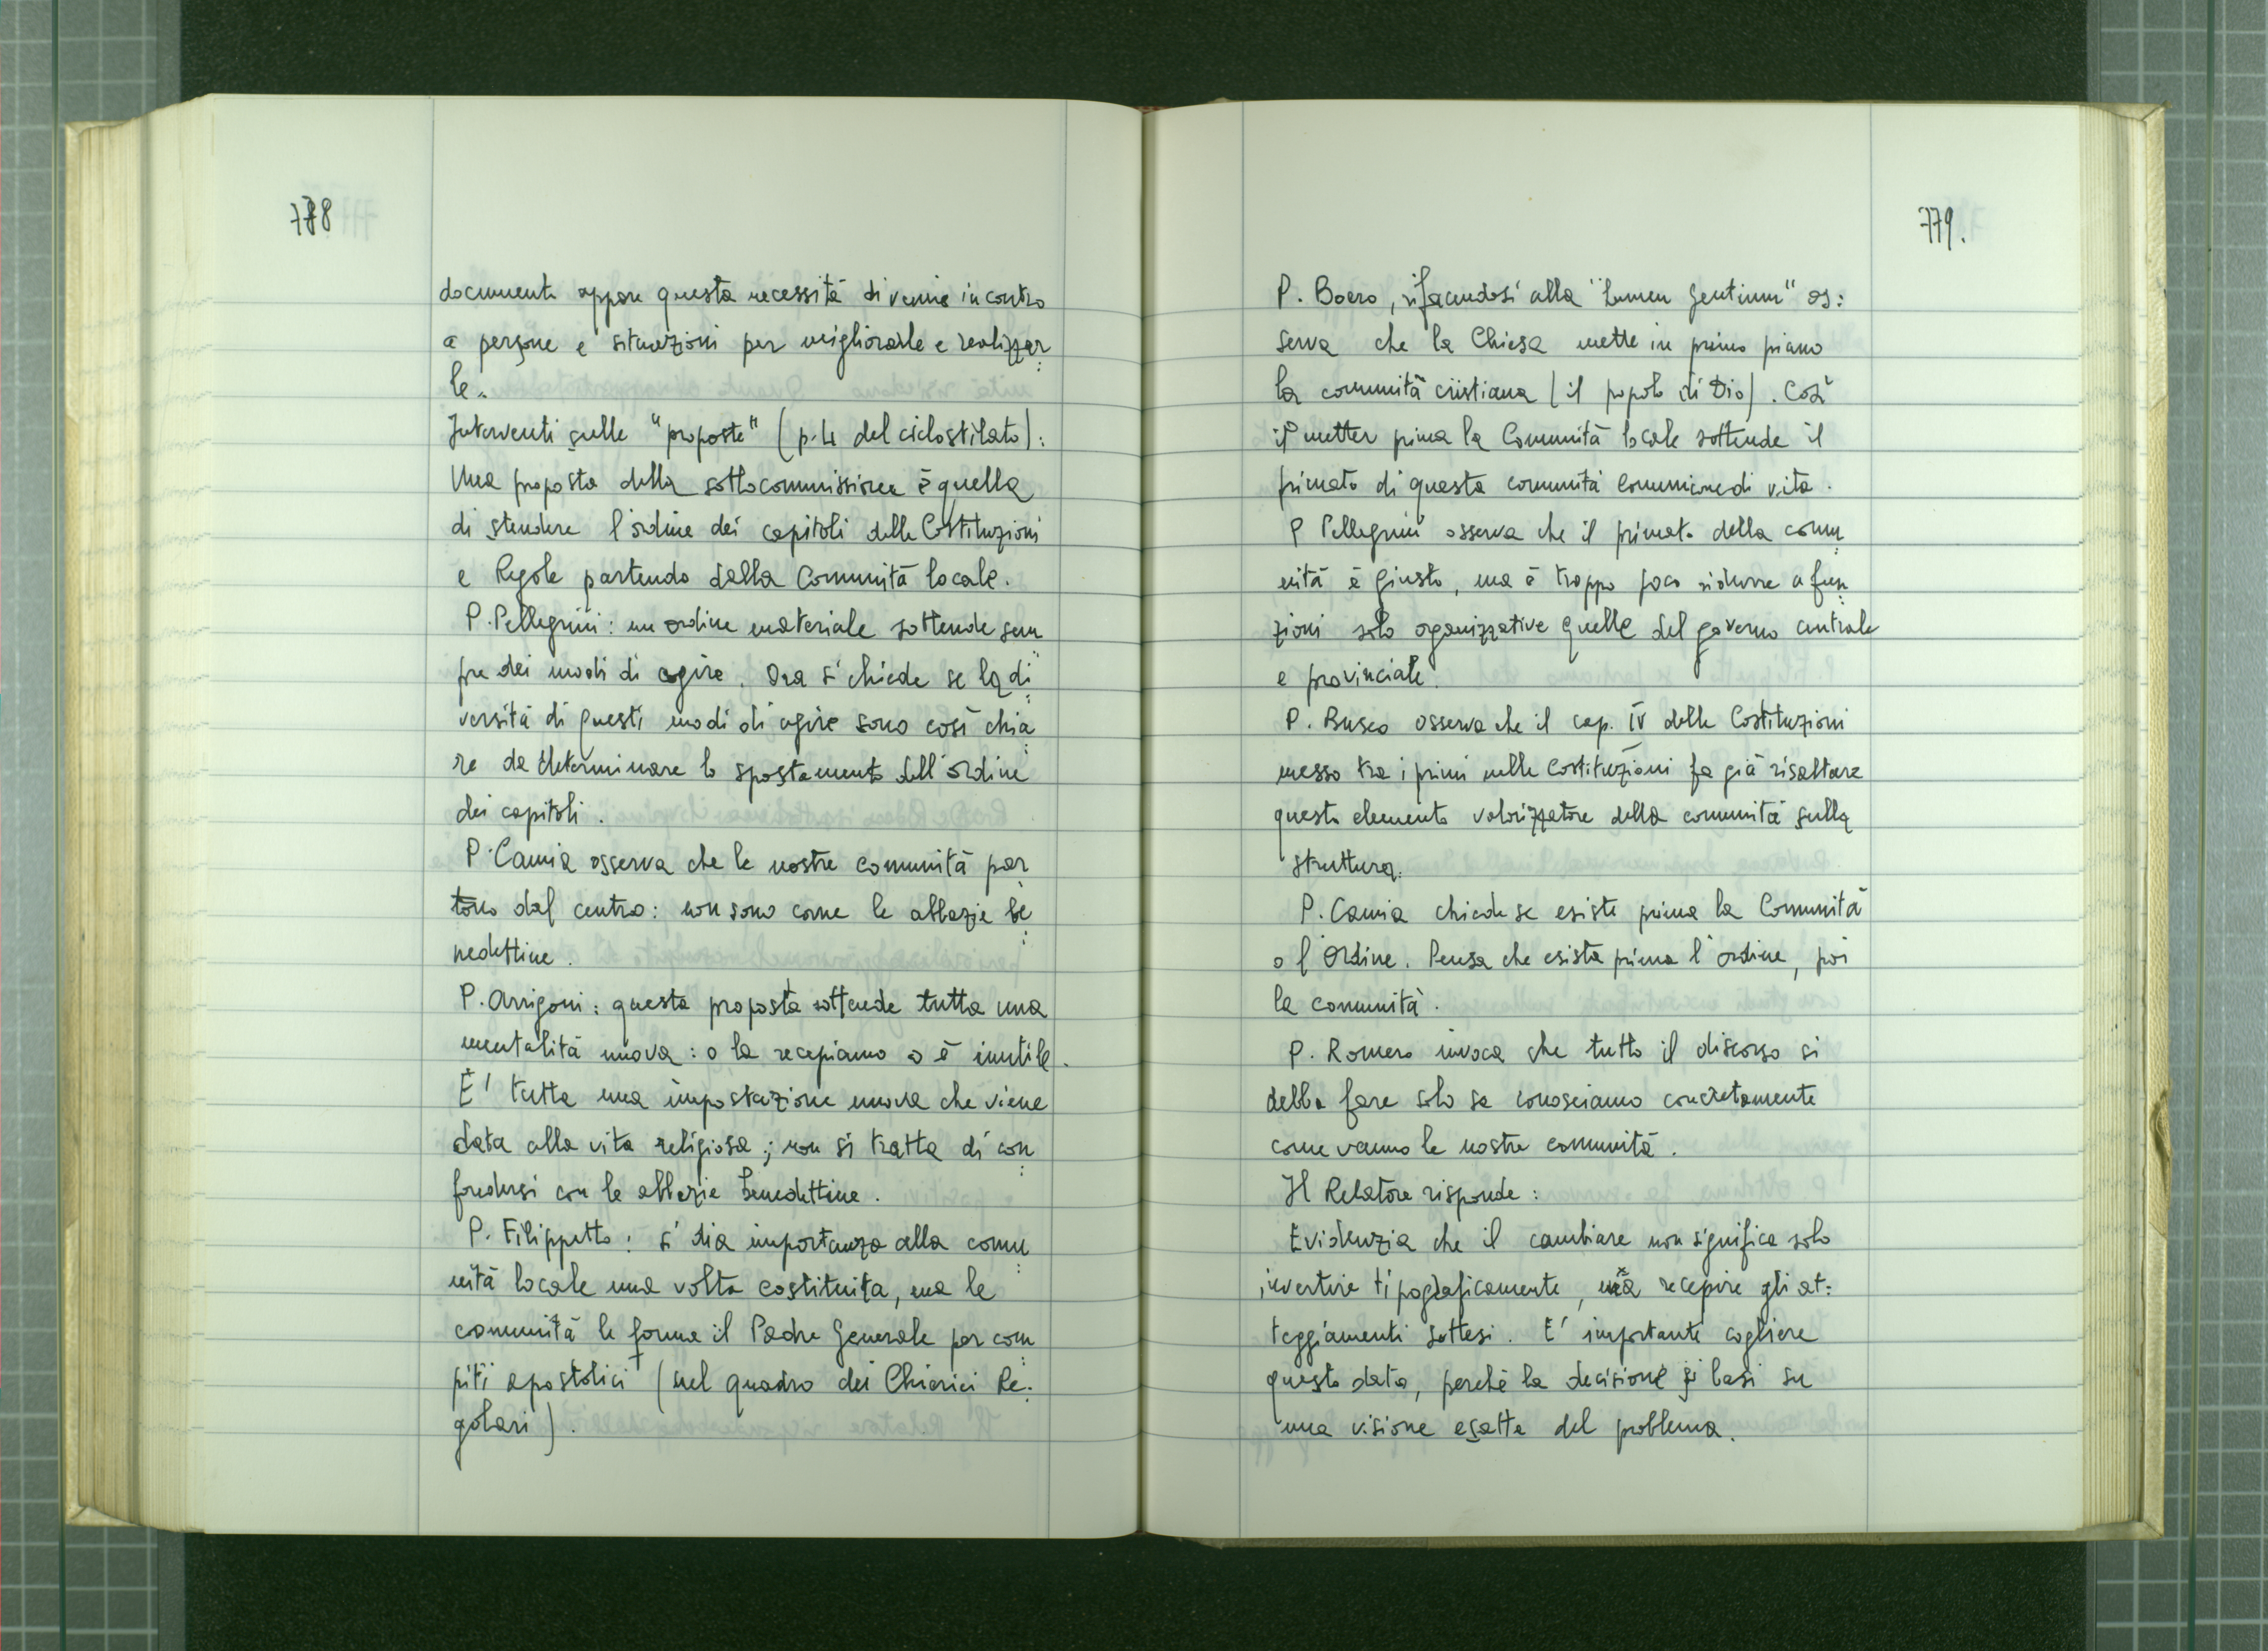 778
documenti appare questa necessità di venire incontro
a persone e situazioni per migliorarle e realizzar
le.
Interventi sulle "proposte" (p. 4 del ciclostilato):
Una proposta della sottocommissione è quella
di stendere l'ordine dei capitoli delle Costituzioni
e Regole partendo dalla Comunità locale.
P. Pellegrini: un ordine materiale sottende sem
pre dei modi di agire. Ora si chiede se la di
versità di questi modi di agire sono così chia
re da determinare lo spostamento dell'ordine
dei capitoli.
P. Camia osserva che le nostre comunità par
tono dal centro: non sono come le abbazie be
nedettine.
P. Arrigoni: questa proposta sottende tutta una
mentalità nuova: o la recepiamo o è inutile.
E' tutta una impostazione nuova che viene
data alla vita religiosa; non si tratta di con
fondersi con le abbazie benedettine.
P. Filippetto: si dia importanza alla comu
nità locale una volta costituita, ma le
comunità le forma il Padre Generale per com
piti apostolici (nel quadro dei Chierici Re:
golari).
779.
P. Boero, rifacendosi alla "Lumen Gentium" os:
serva che la Chiesa mette in primo piano
la comunità cristiana (il popolo di Dio). Così
il metter prima la Comunità locale sottende il
primato di questa comunità comunione di vita.
P Pellegrini osserva che il primato della comu
nità è giusto, ma è troppo poco ridurre a fun
zioni solo organizzative quelle del governo centrale
e provinciale.
P. Busco osserva che il cap. IV delle Costituzioni
messo tra i primi nelle Costituzioni fa già risaltare
questo elemento valorizzatore della comunità sulla
struttura.
P. Camia chiede se esiste prima la Comunità
o l'Ordine. Pensa che esista prima l'ordine, poi
la comunità.
P. Romero invoca che tutto il discorso si
debba fare solo se conosciamo concretamente
come vanno le nostre comunità.
Il Relatore risponde:
Evidenzia che il cambiare non significa solo
invertire tipograficamente, ma recepire gli at:
teggiamenti sottesi. E' importante cogliere
questo dato, perché la decisione si basi su
una visione esatta del problema.